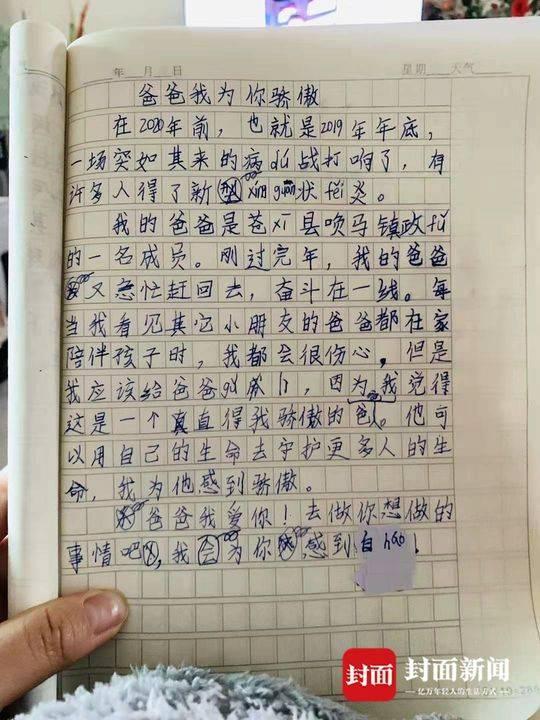 年 月 日 星期 天气
爸爸我为你骄傲
在2020年前，也就是2019年年底，
一场突如其来的病dú战打响了，有
许多人得了新型xīng guān状fèi炎。
我的爸爸是苍xī县唤马镇政fǔ
的一名成员。刚过完年，我的爸爸
又急忙赶回去，奋斗在一线。每
当我看见其它小朋友的爸爸都在家
陪伴孩子时，我都会很伤心，但是
我应该给爸爸gǔ励，因为我觉得
这是一个真直得我骄傲的爸。他可
以用自己的生命去守护更多人的生
命，我为他感到骄傲。
爸爸我爱你！去做你想做的
事情吧，我会为你感到自háo！
封面 封面新闻
亿万年轻人的生活方式